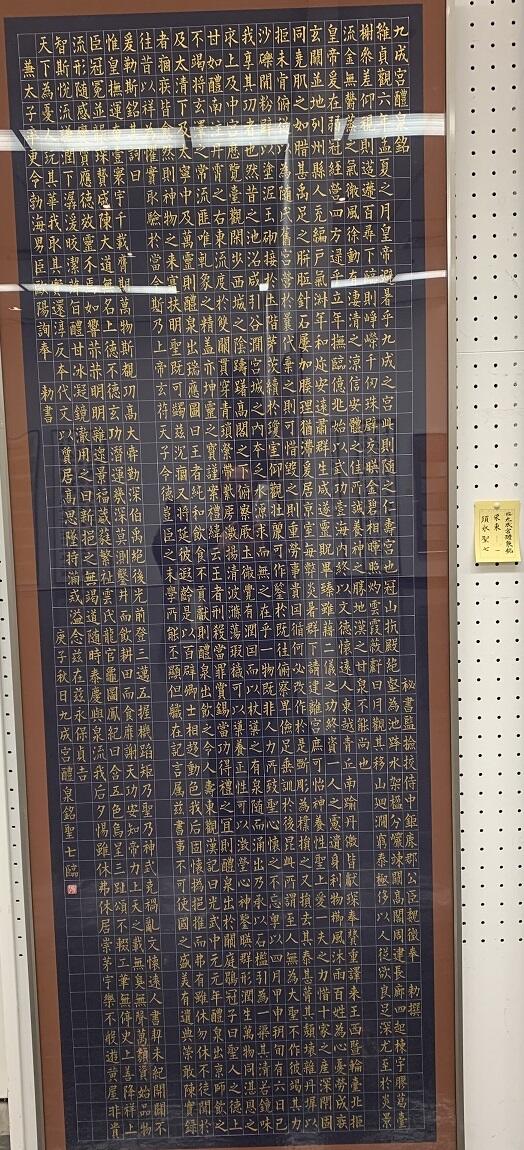 九成宮醴泉銘 秘書監檢校侍中鉅鹿郡公臣魏徵奉 勅撰
維貞觀六年孟夏之月皇帝避暑乎九成之宮此則隨之仁壽宮也冠山抗殿絕壑為池跨水架楹分巖竦闕高閣周建長廊四起棟宇膠葛臺
榭參差仰視則迢遰百尋下臨則崢嶸千仞珠璧交暎金碧相暉照灼雲霞蔽虧日月觀其移山迴澗窮泰極侈以人從欲良足深尤至於炎景
流金無鬱蒸之氣微風徐動有淒清之涼信安體之佳所誠養神之勝地漢之甘泉不能尚也
皇帝爰在弱冠經營四方逮乎立年撫臨億兆始以武功壹海內終以文德懷遠人東越青丘南踰丹徼皆獻琛奉贄重譯來王西暨輪臺北拒
玄闕並地列州縣人充編戶氣淑年和迩安遠肅群生咸遂靈貺畢臻雖藉二儀之功終資一人之慮遺身利物櫛風沐雨百姓為心憂勞成疾
同堯肌之如腊甚禹足之胼胝針石屢加腠理猶滯爰居京室每弊炎暑群下請建離宮庶可怡神養性聖上愛一夫之力惜十家之產深閉固
拒未肯俯從以為隨氏舊宮營於曩代棄之則可惜毀之則重勞事貴因循何必改作於是斲彫為樸損之又損去其泰甚葺其頹壞雜丹墀以
沙礫間粉壁以塗泥玉砌接於土階茅茨續於瓊室仰觀壯麗可作鑒於既往俯察卑儉足垂訓於後昆此所謂至人無為大聖不作彼竭其力
我享其功者也然昔之池沼咸引谷澗宮城之內本乏水源求而無之在乎一物既非人力所致聖心懷之不忘粵以四月甲申朔旬有六日己
亥上及中宮歷覽臺觀閑步西城之陰躊躇高閣之下俯察厥土微覺有潤因而以杖導之有泉隨而涌出乃承以石檻引為一渠其清若鏡味
甘如醴南注丹霄之右東流度於雙闕貫穿青瑣縈帶紫房激揚清波滌蕩瑕穢可以導養正性可以澂瑩心神鑒暎群形潤生萬物同湛恩之
不竭將玄澤之常流匪唯乾象之精蓋亦坤靈之寶謹案禮緯云王者刑殺當罪賞錫當功得禮之宜則醴泉出於闕庭鶡冠子曰聖人之德上
及太清下及太寧中及萬靈則醴泉出瑞應圖曰王者純和飲食不貢獻則醴泉出飲之令人壽東觀漢記曰光武中元元年醴泉出京師飲之
者痼疾皆愈然則神物之來寔扶明聖既可蠲茲沉痼又將延彼遐齡是以百辟卿士相趨動色我后固懷撝挹推而弗有雖休勿休不徒聞於
往昔以祥為懼實取驗於當今斯乃上帝玄符天子令德豈臣之末學所能丕顯但職在記言屬茲書事不可使國之盛美有遺典策敢陳實錄
爰勒斯銘其詞曰
惟皇撫運奄壹寰宇千載膺期萬物斯覩功高大舜勤深伯禹絕後光前登三邁五握機蹈矩乃聖乃神武克禍亂文懷遠人書契未紀開闢不
臣冠冕並襲琛贄咸陳大道無名上德不德玄功潛運幾深莫測鑿井而飲耕田而食靡謝天功安知帝力上天之載無臭無聲萬類資始品物
流形隨感變質應德效靈介焉如響赫赫明明雜遝景福葳蕤繁祉雲氏龍官龜圖鳳紀日含五色烏呈三趾頌不輟工筆無停史上善降祥上
智斯悅流謙潤下潺湲皎潔蓱旨醴甘冰凝鏡澈用之日新挹之無竭道隨時泰慶與泉流我后夕惕雖休弗休居崇茅宇樂不般遊黃屋非貴
天下為憂人玩其華我取其實還淳反本代文以質居高思墜持滿戒溢念茲在茲永保貞吉
兼太子率更令勃海男臣歐陽詢奉 勅書 庚子秋日九成宮醴泉銘聖七臨
臨九成宮醴泉銘
須永聖七